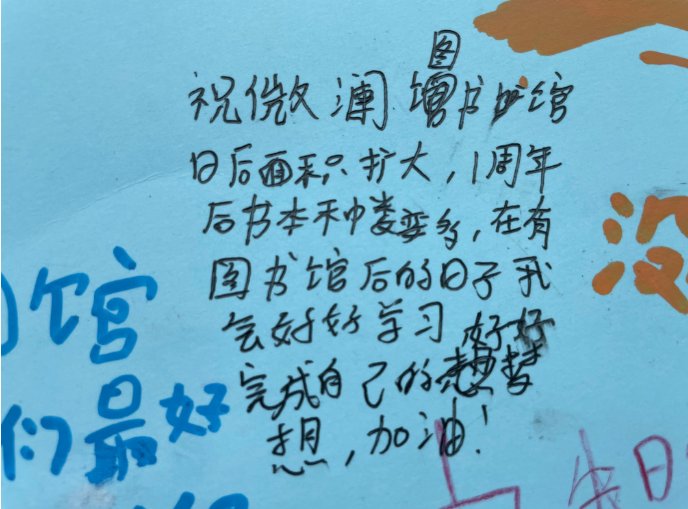 祝微澜图书馆
日后面积扩大，1周年
后书本种类变多，在有
图书馆后的日子我
会好好学习好好
完成自己的梦
想，加油！
馆
们最好
没
生日